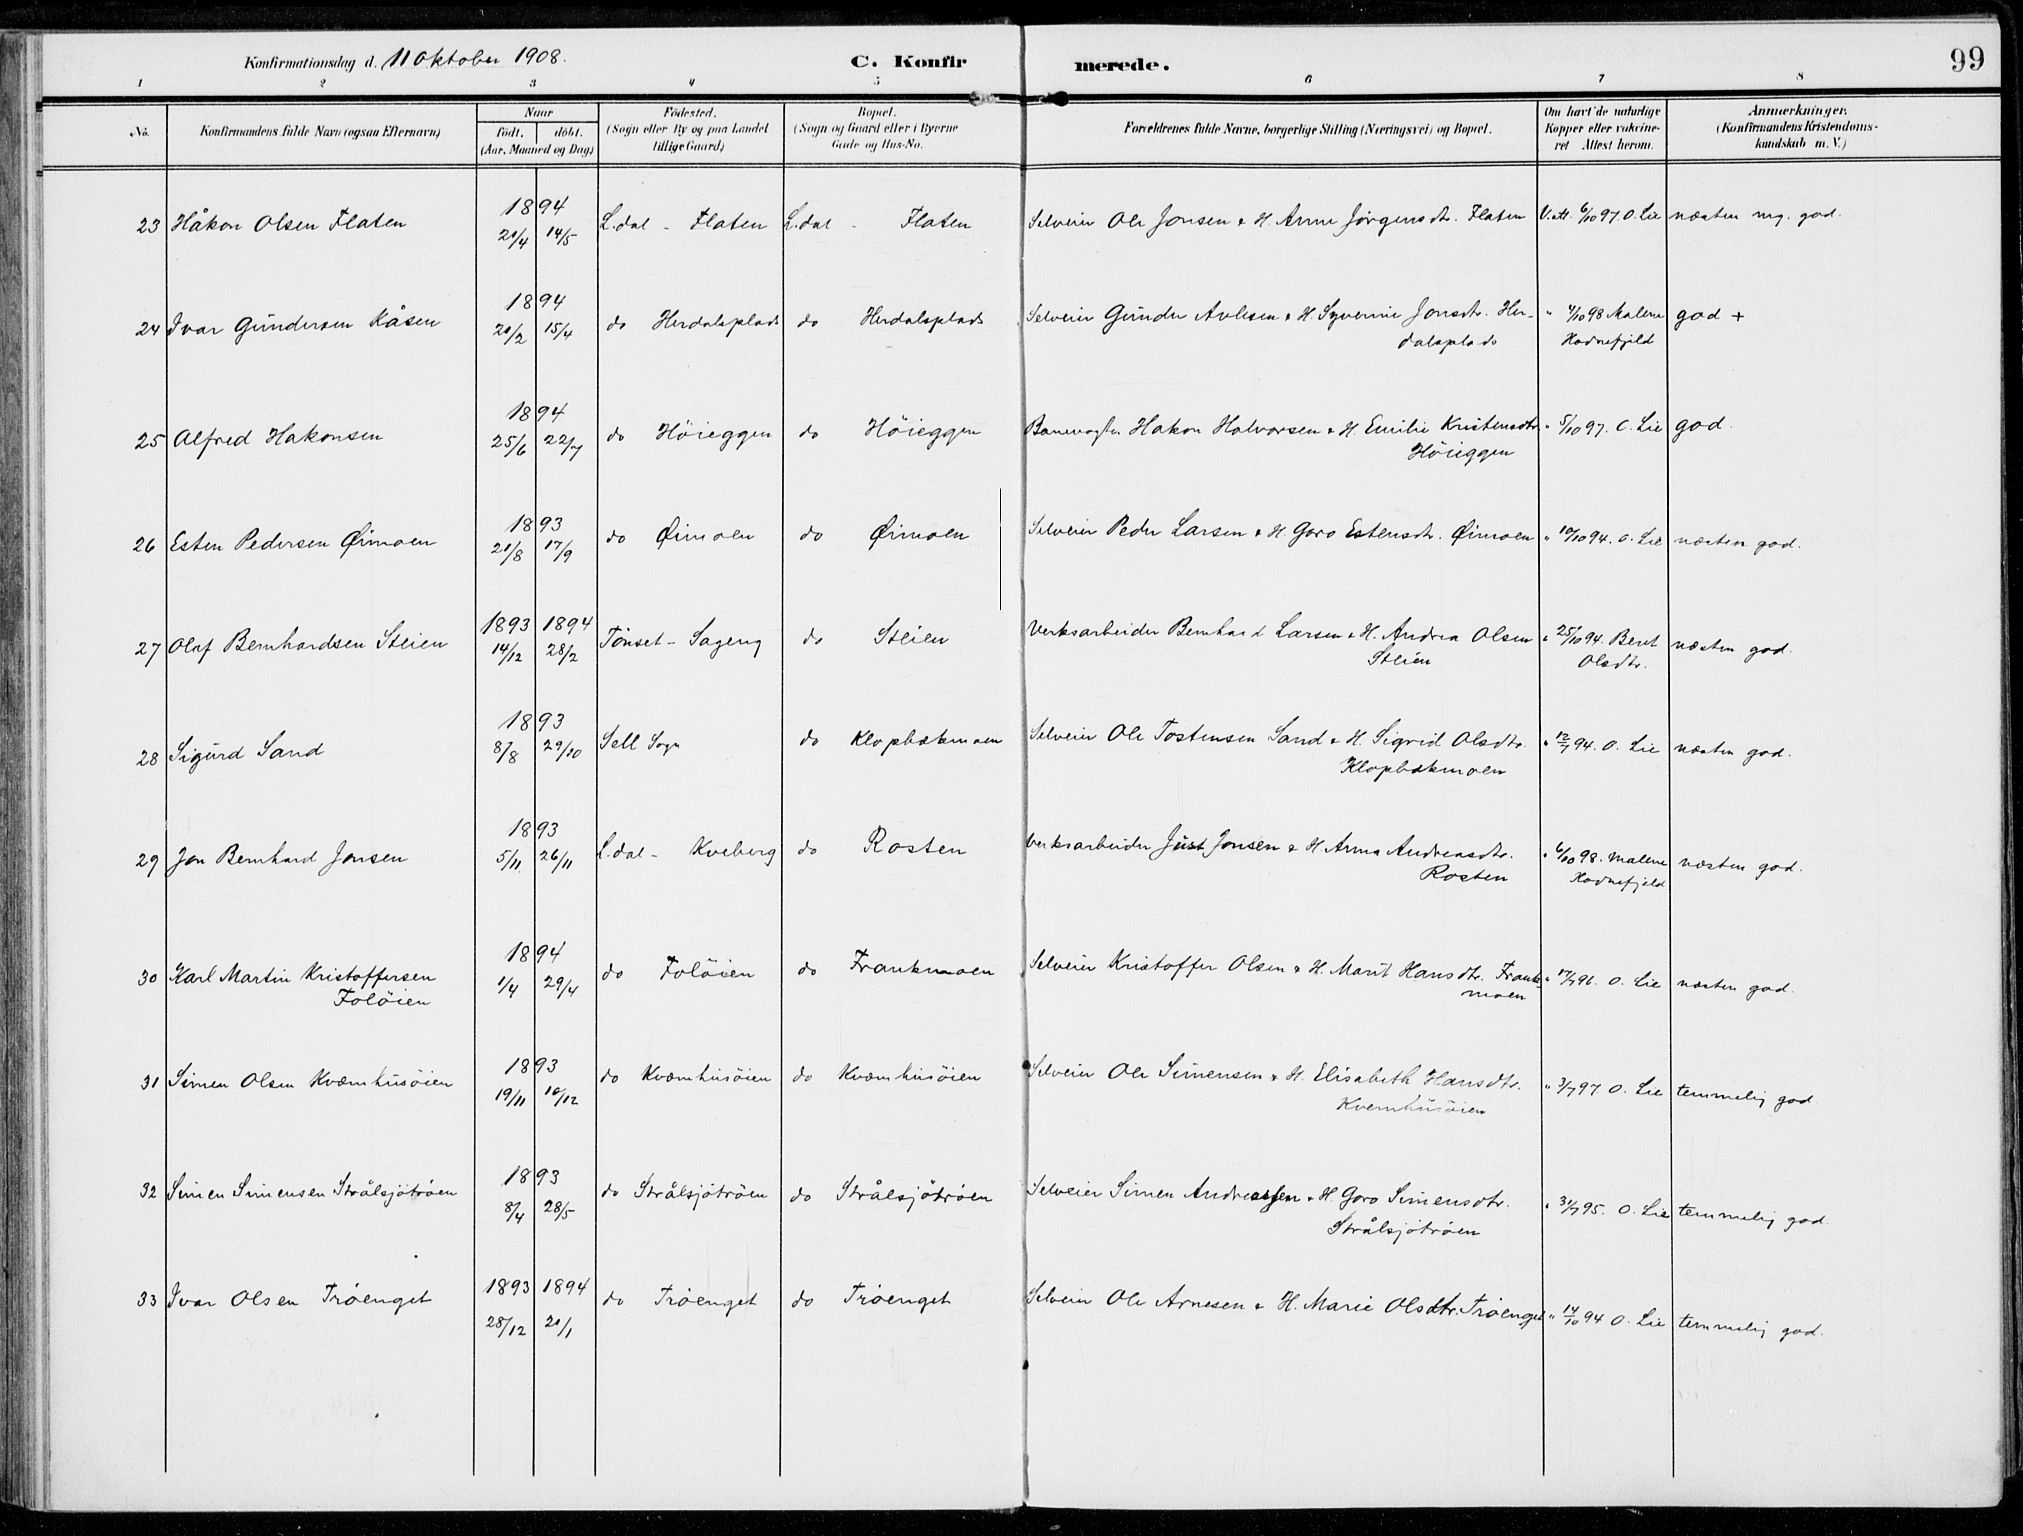 Konfirmationsdag d. 11 Oktober 1908. C. Konfirmerede. 99
1 2 3 4 5 6 7 8
No. Konfirmandens fulde Navn (ogsaa Efternavn) Naar født. døbt. (Aar, Maaned og Dag) Fødested. (Sogn eller By og paa Landet tillige Gaard) Bopæl. (Sogn og Gaard eller i Byerne Gade og Hus-No. Forældrenes fulde Navne, borgerlige Stilling (Næringsvei) og Bopæl. Om havt de naturlige Kopper eller vakcineret Attest herom. Anmærkninger. (Konfirmandens Kristendomskundskab m. V.)
23 Håkon Olsen Flaten 1894 20/4 14/5 L.dal - Flaten L.dal - Flaten Selveier Ole Jonsen & H. Anne Jörgensdtr. Flaten V. att. 6/10 97. O. Lie næsten mg. god.
24 Ivar Gundersen Kåsen 1894 20/2 15/4 do Herdalsplads do Herdalsplads Selveier Gunder Avlesen & H. Syverine Jonsdtr. Her-
dalsplads " 4/10 98 Malene Hodnefjeld god +
25 Alfred Hakonsen 1894 25/6 22/7 do Höieggen do Höieggen Banevogter Hakon Halvorsen & H. Emilie Kristensdtr.
Höieggen " 5/10 97. O. Lie god.
26 Esten Pedersen Øimoen 1893 20/8 17/9 do Øimoen do Øimoen Selveier Peder Larsen & H. Goro Estensdtr. Øimoen " 10/10 94. O. Lie næsten god.
27 Olaf Bernhardsen Steien 1893 1894 14/12 28/2 Tönset - Sageng do Steien Verksarbeider Bernhard Larsen & H. Andrea Olsen
Steien " 25/10 94. Beret Olsdtr. næsten god.
28 Sigurd Sand 1893 8/8 29/10 Sell Sogn do Klopbækmoen Selveier Ole Tostensen Sand & H. Sigrid Olsdtr.
Klopbækmoen " 12/7 94. O. Lie næsten god.
29 Jon Bernhard Jonsen 1893 5/11 26/11 L.dal - Kveberg do Rosten Verksarbeider Just Jonsen & H. Anna Andreasdtr.
Rosten " 6/10 98. Malene Hodnefjeld næsten god.
30 Karl Martin Kristoffersen
Folöien 1894 1/4 29/4 do Folöien do Frankmoen Selveier Kristoffer Olsen & H. Marit Hansdtr. Frank-
moen " 17/7 96. O. Lie næsten god.
31 Simen Olsen Kvæmhusöien 1893 19/11 10/12 do Kvæmhusöien do Kvæmhusöien Selveier Ole Simensen & H. Elisabeth Hansdtr.
Kvemhusöien " 3/7 97. O. Lie temmelig god.
32 Simen Simensen Strålsjötröen 1893 8/4 28/5 do Strålsjötröen do Strålsjötröen Selveier Simen Andreassen & H. Goro Simensdtr.
Strålsjötröen " 31/7 95. O. Lie temmelig god.
33 Ivar Olsen Tröenget 1893 1894 28/12 20/1 do Tröenget do Tröenget Selveier Ole Arnesen & H. Marie Olsdtr. Tröenget " 14/10 94 O. Lie temmelig god.